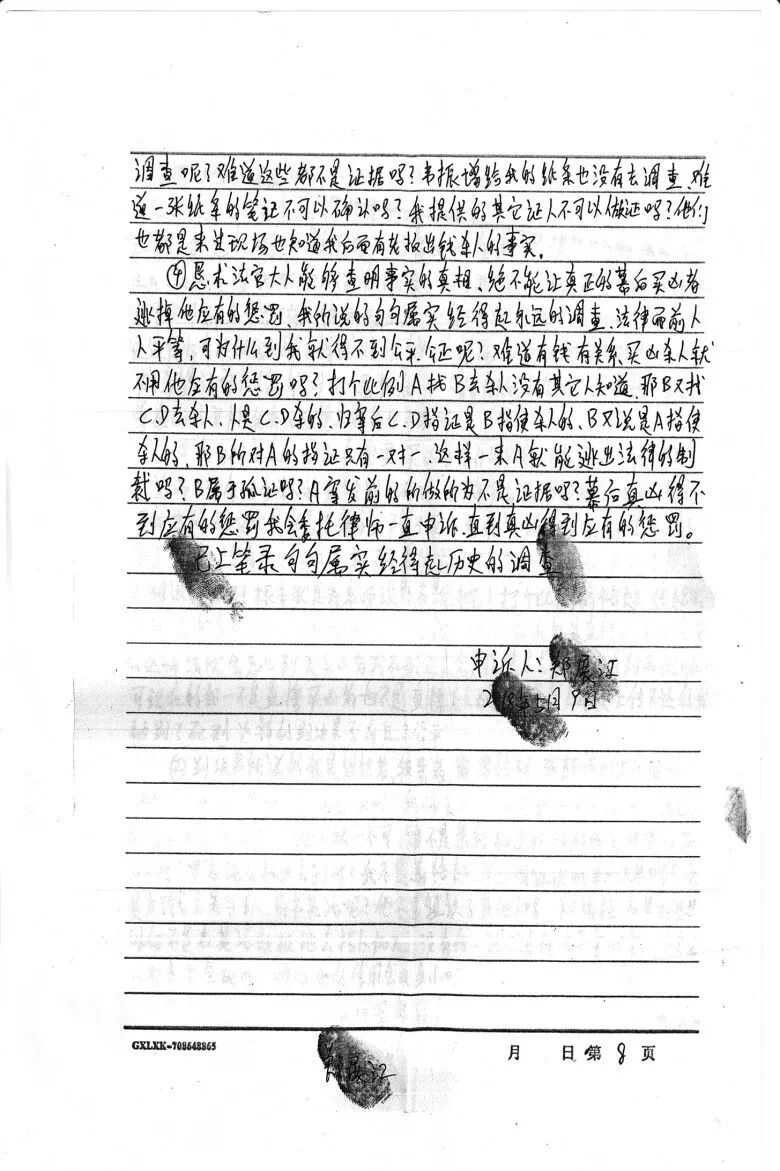 调查呢？难道这些都不是证据吗？韦振增给我的纸条也没有去调查、难
道一张纸条的笔记不可以确认吗？我提供的其它证人不可以做证吗？他们
也都是来过现场也知道我后面有老板出钱杀人的事实。
④恳求法官大人能够查明事实的真相、绝不能让真正的幕后买凶者
逃掉他应有的惩罚、我所说的句句属实经得起永远的调查、法律面前人
人平等，可为什么到我就得不到公平、公正呢？难道有钱有关系、买凶杀人就
不用他应有的惩罚吗？打个比例A找B去杀人没有其它人知道、那B又找
C.D去杀人、人是C.D杀的、归案后C.D指证是B指使杀人的、B又说是A指使
杀人的、那B所对A的指证只有一对一、这样一来A就能逃出法律的制
裁吗？B属于孤证吗？A案发前的所做所为不是证据吗？幕后真凶得不
到应有的惩罚我会委托律师一直申诉、直到真凶得到应有的惩罚。
已上笔录句句属实经得起历史的调查
申诉人：江
月9日
GXLXK-708648865
月 日 第 8 页
江